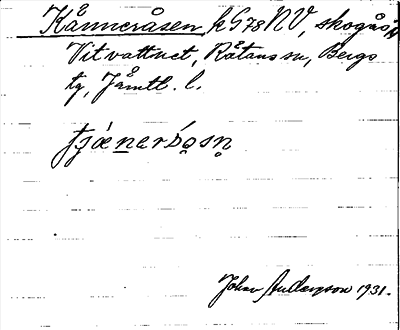 Känneråsen kG78NV, skogås
Vitvattnet, Råtans sn, Bergs
tg, Jämtl. l.
tjǽnerb́o̥sn̥
Johan Anderzson 1931.